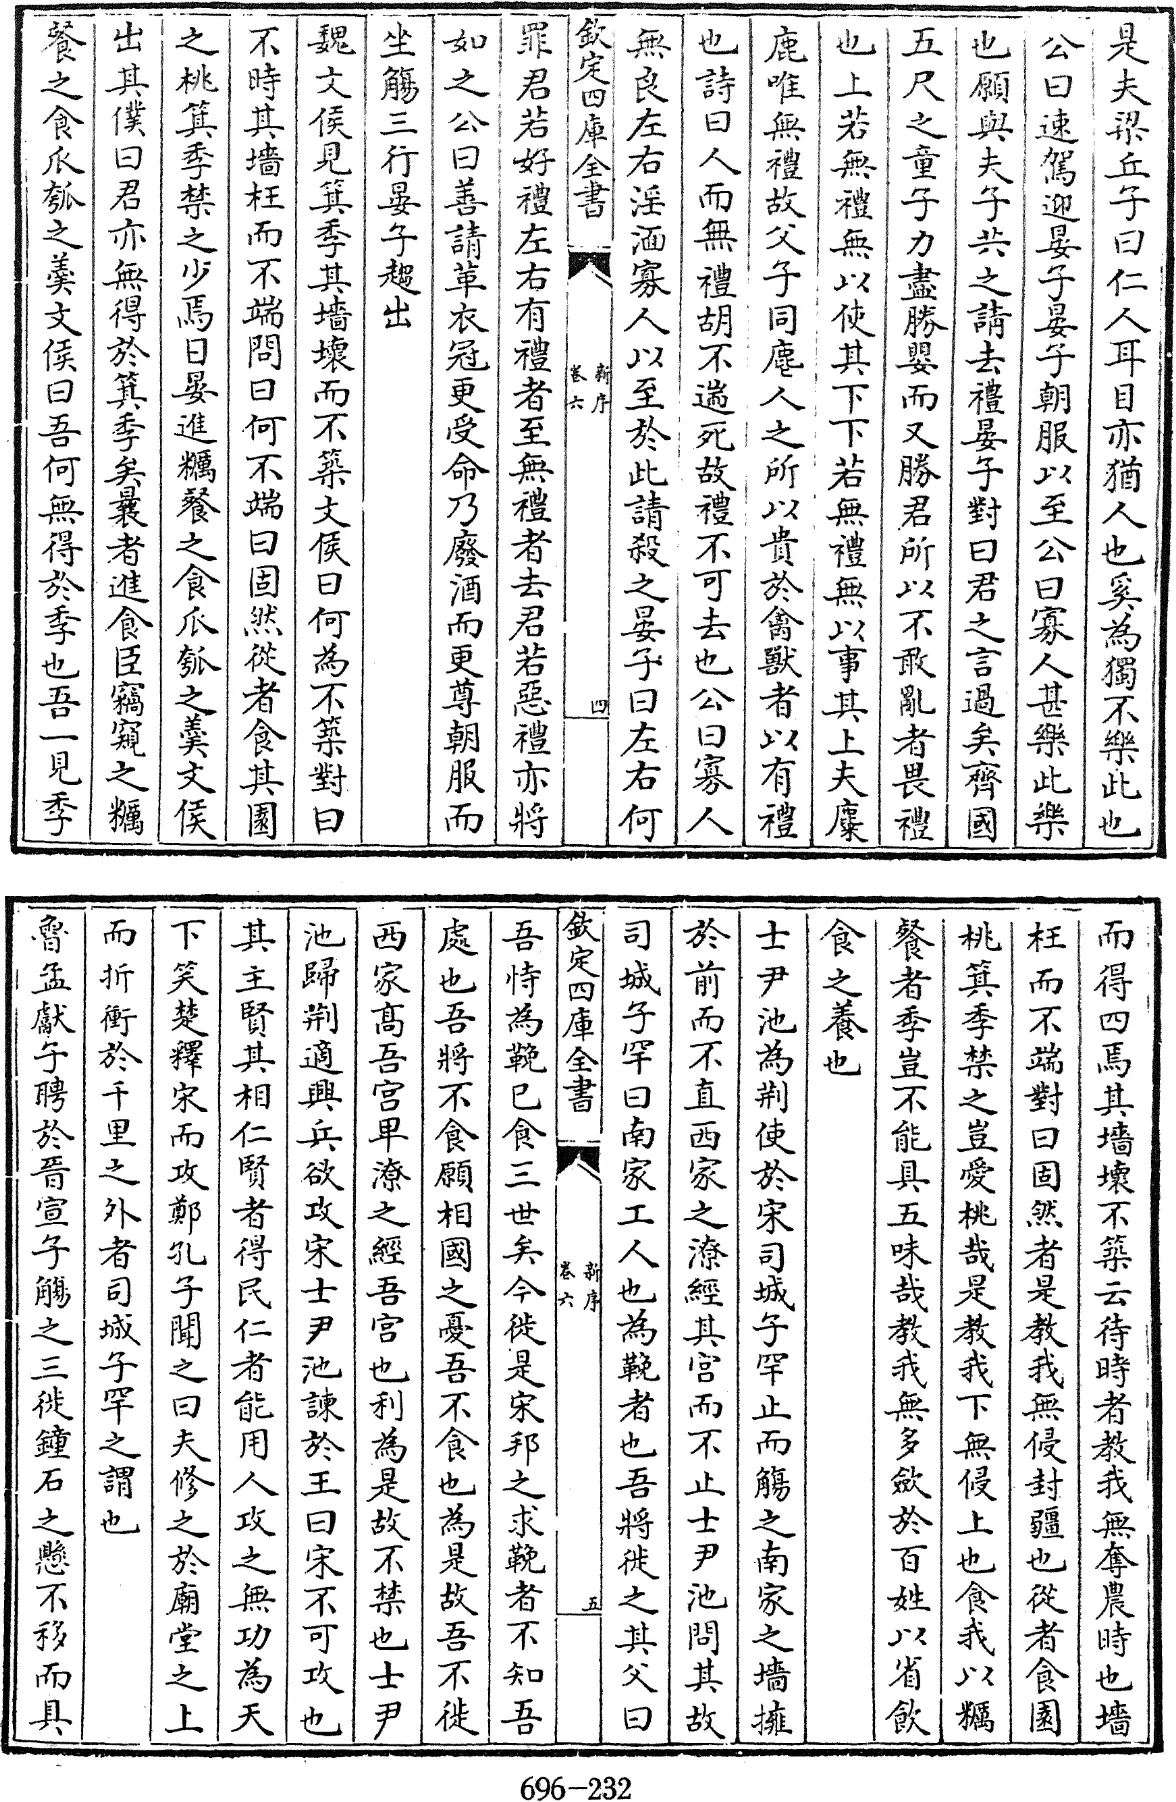 是夫梁丘子曰仁人耳目亦猶人也奚為獨不樂此也
公曰速駕迎晏子晏子朝服以至公曰寡人甚樂此樂
也願與夫子共之請去禮晏子對曰君之言過矣齊國
五尺之童子力盡勝嬰而又勝君所以不敢亂者畏禮
也上若無禮無以使其下下若無禮無以事其上夫麋
鹿唯無禮故父子同麀人之所以貴於禽獸者以有禮
也詩曰人而無禮胡不遄死故禮不可去也公曰寡人
無良左右淫湎寡人以至於此請殺之晏子曰左右何
欽定四庫全書
新序
卷六
四
罪君若好禮左右有禮者至無禮者去君若惡禮亦將
如之公曰善請革衣冠更受命乃廢酒而更尊朝服而
坐觴三行晏子趨出
魏文侯見箕季其墻壞而不築文侯曰何為不築對曰
不時其墻枉而不端問曰何不端曰固然從者食其園
之桃箕季禁之少焉日晏進糲餐之食瓜瓠之羮文侯
出其僕曰君亦無得於箕季矣曩者進食臣竊窺之糲
餐之食瓜瓠之羮文侯曰吾何無得於季也吾一見季
而得四焉其墻壞不築云待時者教我無奪農時也墻
枉而不端對曰固然者是教我無侵封疆也從者食園
桃箕季禁之豈愛桃哉是教我下無侵上也食我以糲
餐者季豈不能具五味哉教我無多斂於百姓以省飲
食之養也
士尹池為荆使於宋司城子罕止而觴之南家之墻擁
於前而不直西家之潦經其宫而不止士尹池問其故
司城子罕曰南家工人也為鞔者也吾將徙之其父曰
欽定四庫全書
新序
卷六
五
吾恃為鞔已食三世矣今徙是宋邦之求鞔者不知吾
處也吾將不食願相國之憂吾不食也為是故吾不徙
西家髙吾宫卑潦之經吾宫也利為是故不禁也士尹
池歸荆適興兵欲攻宋士尹池諫於王曰宋不可攻也
其主賢其相仁賢者得民仁者能用人攻之無功為天
下笑楚釋宋而攻鄭孔子聞之曰夫修之於廟堂之上
而折衝於千里之外者司城子罕之謂也
魯孟獻子聘於晉宣子觴之三徙鐘石之懸不移而具
696-232